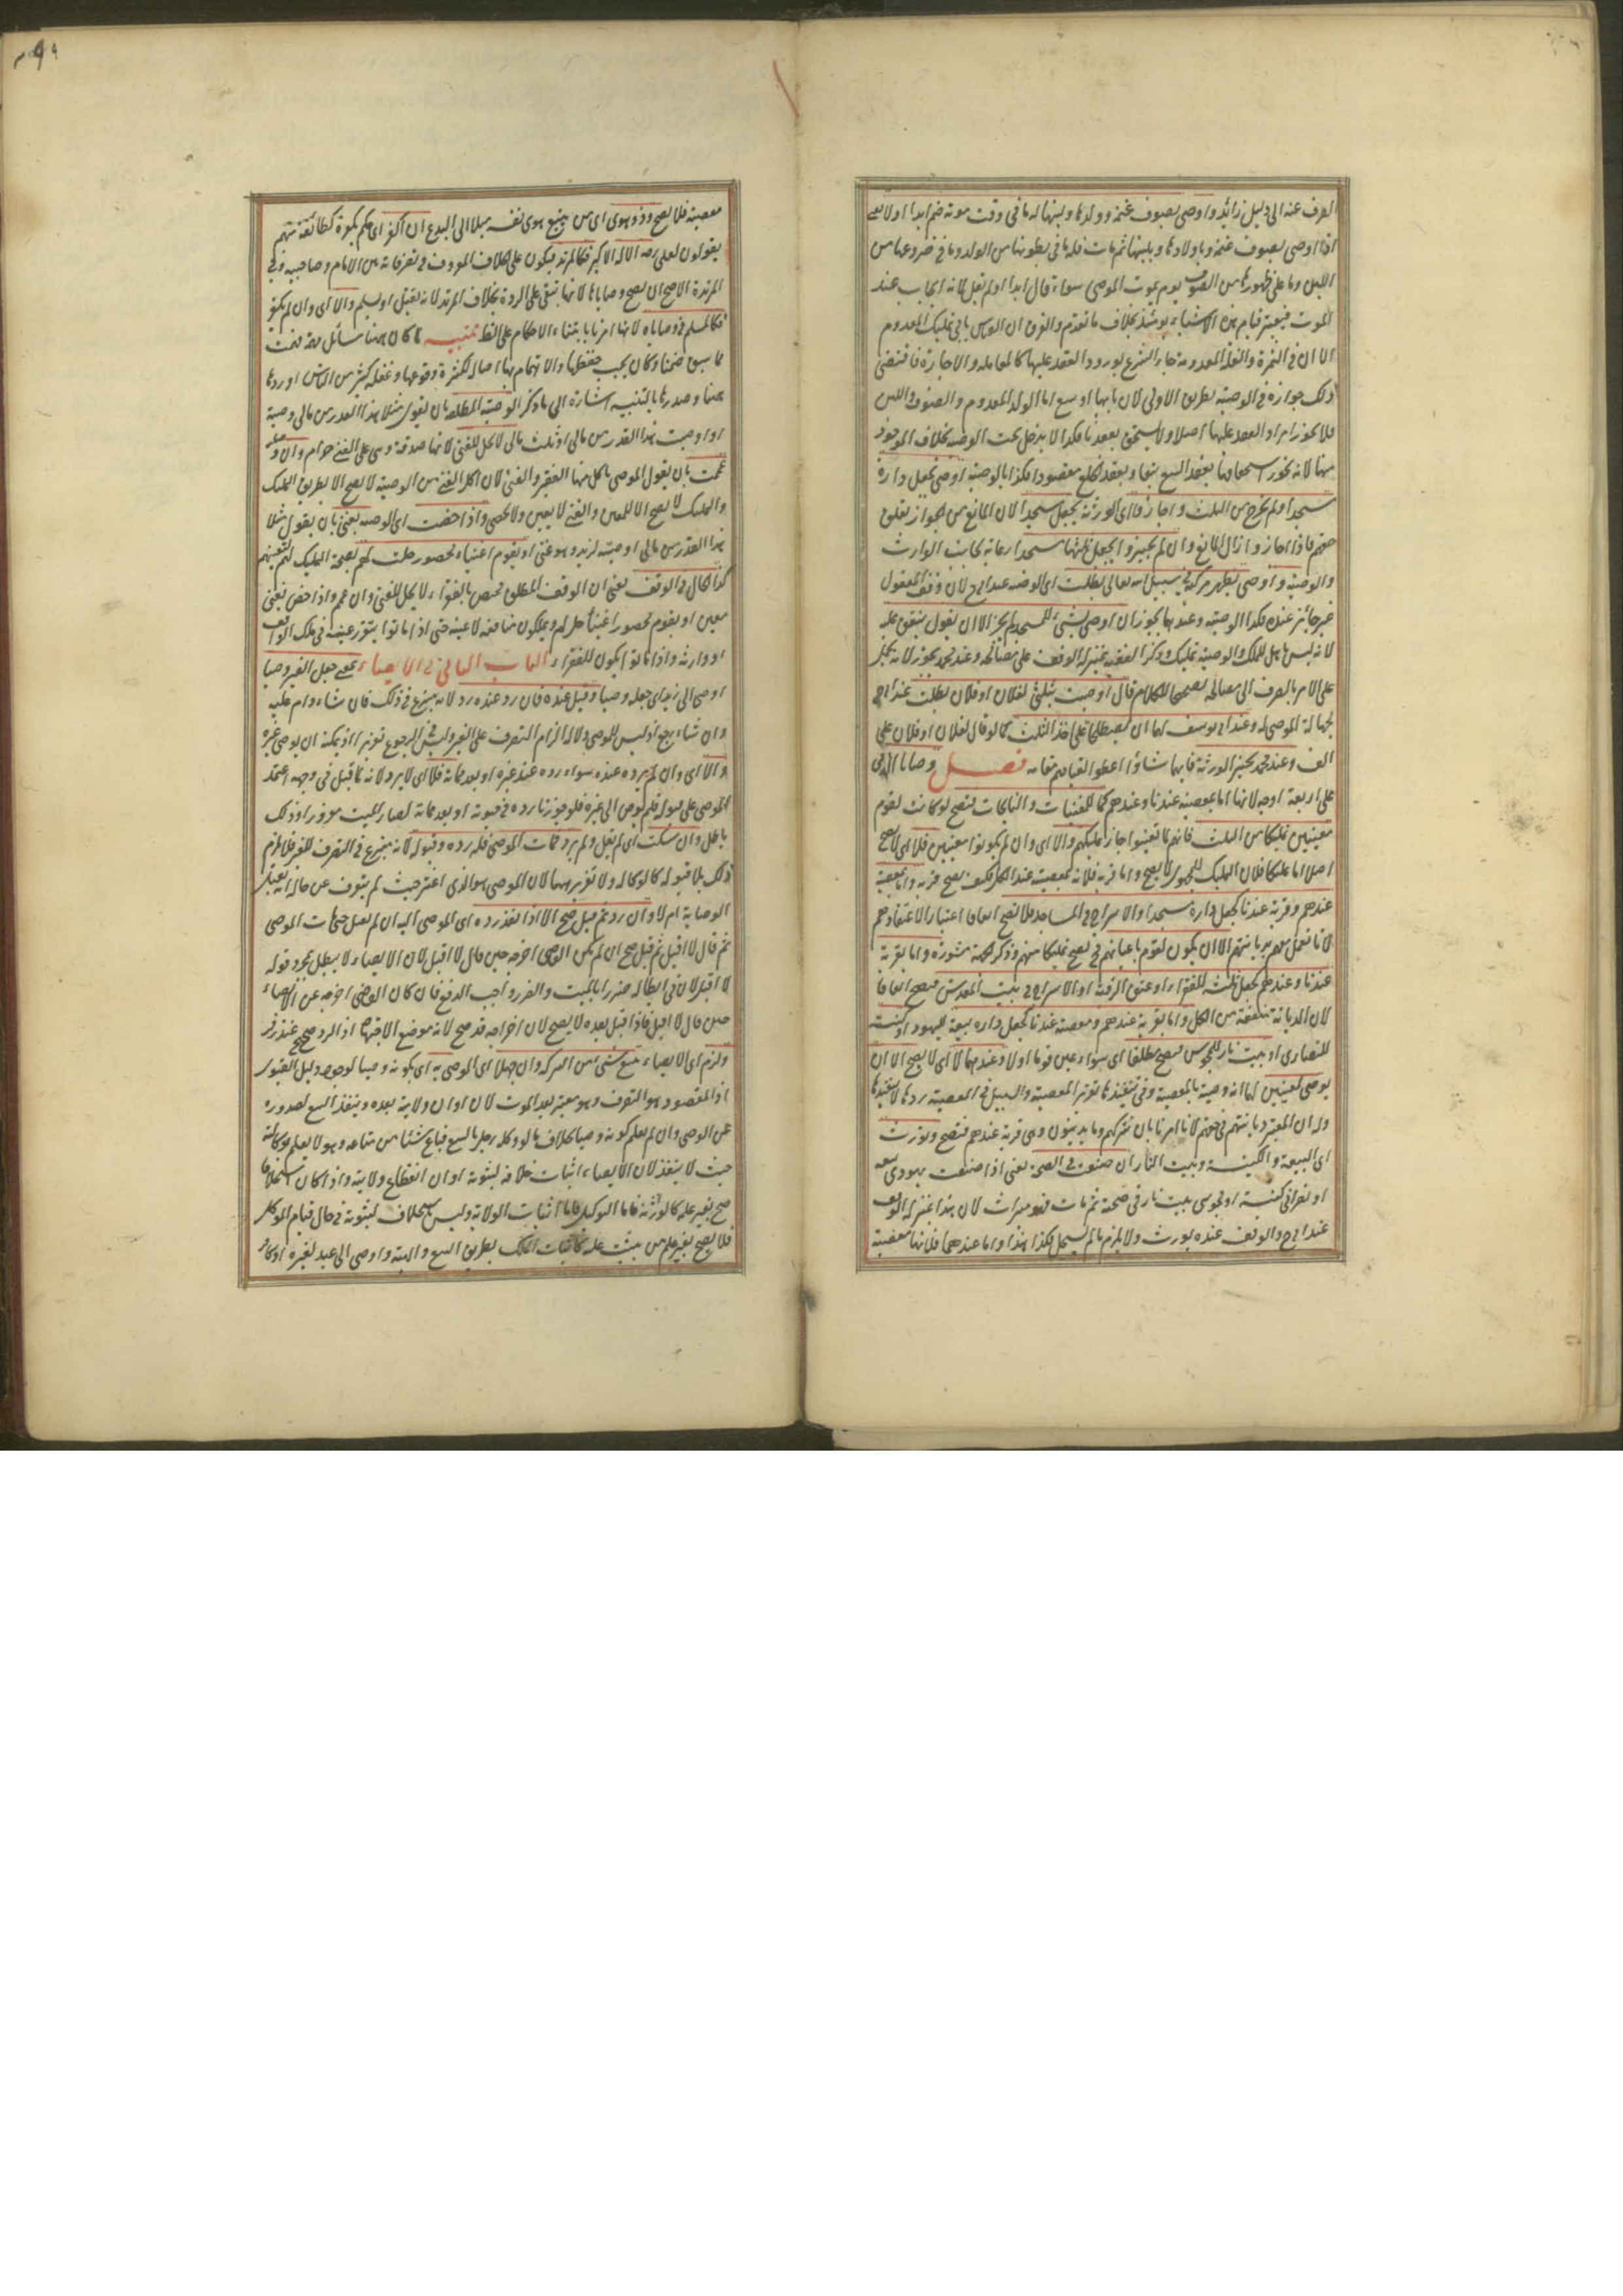 الصرف عنه الى دليل زائد واوصى بصوف غنمه وولدها ولبنها له ما فى وقت موته ضم ابدا اولا يعنى
اذا اوصى بصوف غنمه وباولادها وبلبنها ثم مات فله ما فى بطونها من الولد وما فى ضروعها من
اللبن وما على ظهورها من الصوف يوم يموت الموصى سواء قال ابدا او لم يقل لانه ايجاب عند
الموت فيعتبر قيام هذه الاشياء يومئذ بخلاف ما تقدم والفرق ان القياس يابى تمليك المعدوم
الا ان فى الثمرة والغلة المعدومة جاء الشرع بورود العقد عليها كالمعاملة والاجارة فاقتضى
ذلك جوازه فى الوصية بطريق الاولى لان بابها اوسع اما الولد المعدوم والصوف واللبن
فلا يجوز ايراد العقد عليها اصلا ولا يستحق بعقد ما فكذا لا يدخل تحت الوصية بخلاف الموجود
منها لانه يجوز استحقاقها بعقد البيع تبعا وبعقد الخلع مقصودا فكذا بالوصية اوصى بجعل داره
مسجدا ولم يخرج من الثلث واجازوا اى الورثة يجعل مسجدا لان المانع من الجواز تعلق
حقهم فاذا اجازوا زال المانع وان لم يجيزوا يجعل ثلثها مسجدا رعاية لجانب الوارث
والوصية واوصى بظهر مركبه فى سبيل الله تعالى بطلت اى الوصية عند ابى ح لان وقف المنقول
غير جائز عنده فكذا الوصية وعندهما يجوزان اوصى بشئ للمسجد لم يجز الا ان يقول ينفق عليه
لانه ليس باهل للملك والوصية تمليك وذكر النفقة بمنزلة الوقف على مصالحه وعند محمد يجوز لانه يحمل
على الامر بالصرف الى مصالحه تصحيحا للكلام قال اوصيت بثلثى لفلان او فلان بطلت عند ابى ح
لجهالة الموصى له وعند ابى يوسف لهما ان يصطلحا على اخذ الثلث كما لو قال لفلان او فلان على
الف وعند محمد يخير الورثة فايهما شاؤا اعطوا لقيامهم مقامه فصل وصايا الذمى
على اربعة اوجه لانها اما بمعصية عندنا وعندهم كما للمغنيات والنايحات فتصح لو كانت لقوم
معينين تمليكا من الثلث فانهم لما تعينوا جاز تمليكهم والا اى وان لم يكونوا معينين فلا اى لا يصح
اصلا اما تمليكا فلان التمليك للمجهول لا يصح واما قربة فلانه معصية عند الكل فكيف يصح قربة واما بمعصية
عندهم وقربة عندنا كجعل داره مسجدا والاسراج فى المساجد فلا تصح اتفاقا اعتبارا لاعتقادهم
لانا نعمل معهم بديانتهم الا ان يكون لقوم باعيانهم فيصح تمليكا منهم وذكر الجهة مشورة واما بقربة
عندنا وعندهم كجعل ثلثه للفقراء او عتق الرقبة او الاسراج فى بيت المقدس فيصح اتفاقا
لان الديانة متفقة من الكل واما بقربة عندهم ومعصية عندنا كجعل داره بيعة لليهود او كنيسة
للنصارى او بيت نار للمجوس فيصح مطلقا اى سواء عين قوما اولا وعندهما لا اى لا يصح الا ان
يوصى لمعينين لهما انه وصية بالمعصية وفى تنفيذها تقرير المعصية والسبيل فى المعصية ردها لا تنفيذها
وله ان المعتبر ديانتهم فى حقهم لانا امرنا بان نتركهم وما يدينون وهى قربة عندهم فتصح وتورث
اى البيعة والكنيسة وبيت النار ان صنعت فى الصحة يعنى اذا صنعت يهودى بيعة
او نصرانى كنيسة او مجوسى بيت نار فى صحته ثم مات فهو ميراث لان هذا بمنزلة الوقف
عند ابى ح والوقف عنده يورث ولا يلزم ما لم يسجل فكذا هذا واما عندهما فلانها معصية
معصية فلا يصح وذو هوى اى من يتبع هوى نفسه ميلا الى البدع ان اكفر اى حكم بكفره كطائفة منهم
يقولون لعلى رضه الاله الاكبر فكالمرتد فيكون على الخلاف المعروف فى تصرفاته بين الامام وصاحبيه وفى
المرتدة الاصح ان يصح وصاياها لانها تبقى على الردة بخلاف المرتد لانه يقتل او يسلم والا اى وان لم يكفر
فكالمسلم فى وصاياه لانها امرنا بابتناء الاحكام على الظاهر تنبيه لما كان ههنا مسائل مهمة فهمت
مما سبق ضمنا وكان يجب حفظها والاهتمام بها امالكثرة وقوعها وغفلة كثير من الناس اوردها
ههنا وصدرها بالتنبيه اشارة الى ما ذكر الوصية المطلقة بان يقول مثلا هذا القدر من مالى وصية
او اوصيت هذا القدر من مالى او ثلث مالى لا تحل للغنى لانها صدقة وهى على الغنى حرام وان وصلية
عممت بان يقول الموصى يأكل منها الفقير والغنى لان اكل الغنى من الوصية لا يصح الا بطريق التمليك
والتمليك لا يصح الا للمعين والغنى لا يعين ولا يحصى واذا خصت اى الوصية بغنى بان يقول مثلا
هذا القدر من مالى وصية لزيد وهو غنى او بقوم اغنياء محصور حلت لهم بصحة التمليك لتعينهم
كذا الحال فى الوقف يعنى ان الوقف المطلق مختص بالفقراء لا يحل للغنى وان عمم واذا خص بغنى
معين او بقوم محصور اغنياء حل لهم ويملكون منافعه لا عينه حتى اذا ماتوا يتقرر عينه فى ملك الواقف
او وارثه واذا ماتوا يكون للفقراء الباب الثانى فى الايصاء بمعنى جعل الغير وصيا
اوصى الى زيد اى جعله وصيا وقبل عنده فان رد عنده رد لانه متبرع فى ذلك فان شاء دام عليه
وان شاء رجع اذ ليس للموصى ولاية الزام التصرف على الغير وليس فى الرجوع تغرير اذ يمكنه ان يوصى غيره
والا اى وان لم يرده عنده سواء رده عند غيره او بعد مماته فلا اى لا يرد لانه لما قبل فى وجهه اعتمد
الموصى على قبوله فلم يوص الى غيره فلو جوزنا رده فى غيبته او بعد مماته لصار الميت مغرورا وذلك
باطل وان سكت اى لم يقبل ولم يرد فمات الموصى فله رده وقبوله لانه متبرع فى التصرف للغير فلا يلزم
ذلك بلا قبوله كالوكالة ولا تغرير ههنا لان الموصى هو الذى اغتر حيث لم يتعرف عن حاله انه يقبل
الوصاية ام لا وان رد ثم قبل صح الا اذا نفذ رده اى الموصى اليه ان لم يقبل حتى مات الموصى
ثم قال لا اقبل ثم قبل صح ان لم يكن القاضى اخرجه حين قال لا اقبل لان الايصاء لا يبطل بمجرد قوله
لا اقبل لان فى ابطاله ضررا بالميت والضرر واجب الدفع فان كان القاضى اخرجه عن الايصاء
حين قال لا اقبل فاذا قبل بعده لا يصح لان اخراجه قد صح لانه موضع الاجتهاد اذ الرد صحيح عند زفر
ولزم اى الايصاء ببيع شئ من التركة وان جهلا اى الموصى به اى بكونه وصيا لوجود دليل القبول
اذ المقصود هو التصرف وهو معتبر بعد الموت لان اوان ولايته بعده وينفذ البيع لصدوره
عن الوصى وان لم يعلم كونه وصيا بخلاف ما لو وكله رجل بالبيع فباع شيئا من متاعه وهو لا يعلم بوكالته
حيث لا ينفذ لان الايصاء اثبات خلافة لثبوته اوان انقطاع ولايته واذا كان استخلافا
صح بغير علمه كالوراثة فاما التوكيل فاثبات الولاية وليس باستخلاف لثبوته فى حال قيام الموكل
فلا يصح بغير علم من يثبت عليه كاثبات الملك بطريق البيع والهبة واوصى الى عبد لغيره او كافر